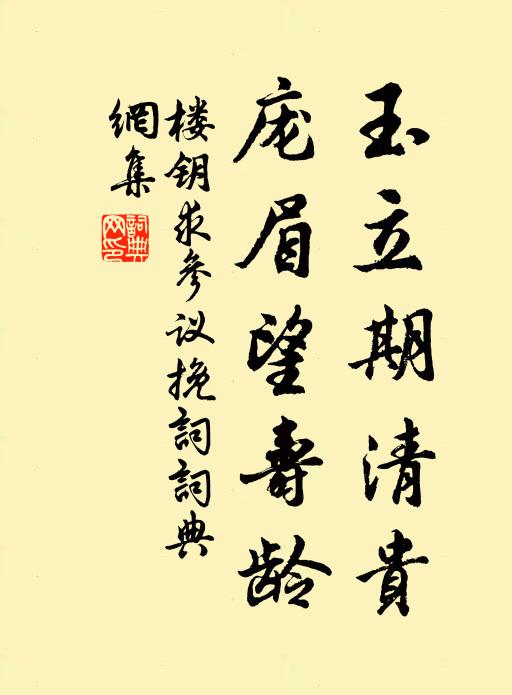 玉立期清貴
庞眉望壽龄
楼钥求参议挽詞詞典
網集
詞典
网印